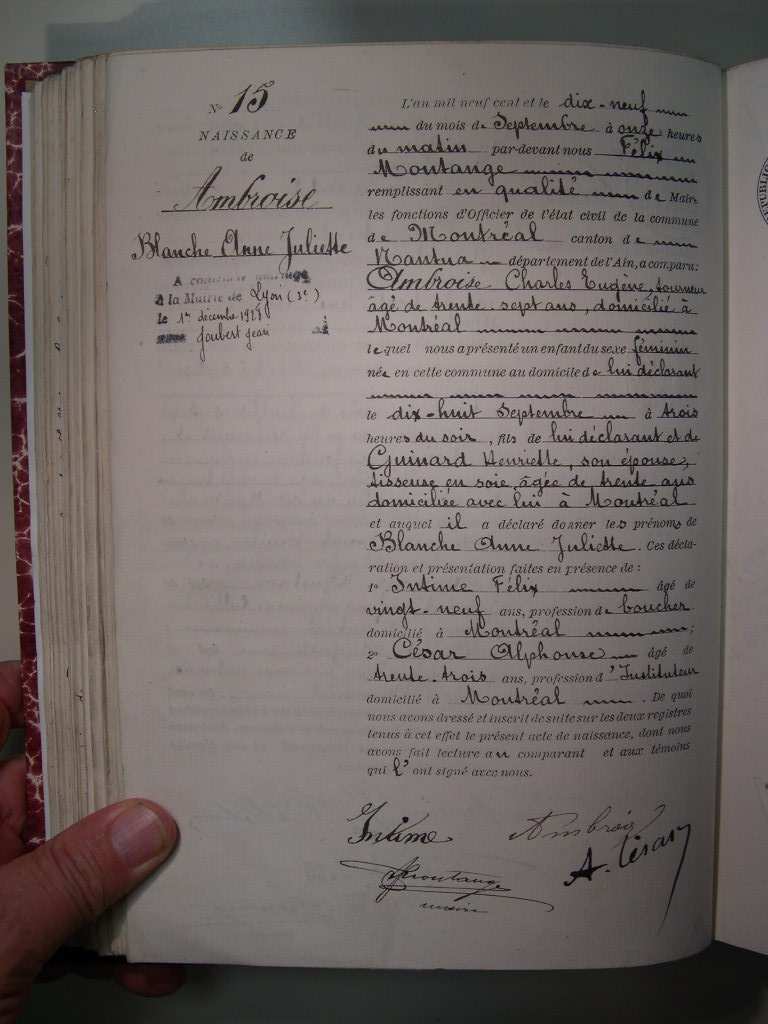 N° 15
NAISSANCE
de
Ambroise
Blanche Anne Juliette
A contracté mariage
à la Mairie de Lyon (3e)
le 1er décembre
Joubert Jean
L'an mil neuf cent et le dix-neuf
du mois de Septembre à onze heures
du matin par-devant nous Félix
Montange
remplissant en qualité de Maire
les fonctions d'Officier de l'état civil de la commune
de Montréal canton de
Nantua département de l'Ain, a comparu:
Ambroise Charles Eugène, tourneur
âgé de trente-sept ans, domicilié à
Montréal
lequel nous a présenté un enfant du sexe féminin
née en cette commune au domicile de lui déclarant
le dix-huit Septembre à trois
heures du soir, fils de lui déclarant et de
Guinard Henriette, son épouse,
tisseuse en soie, âgée de trente ans
domiciliée avec lui à Montréal
et auquel il a déclaré donner les prénoms de
Blanche Anne Juliette. Ces décla-
ration et présentation faites en présence de :
1° Intime Félix âgé de
vingt-neuf ans, profession de boucher
domicilié à Montréal ;
2° César Alphonse âgé de
trente-trois ans, profession d'Instituteur
domicilié à Montréal . De quoi
nous avons dressé et inscrit de suite sur les deux registres
tenus à cet effet le présent acte de naissance, dont nous
avons fait lecture au comparant et aux témoins
qui l'ont signé avec nous.
Intime Ambroise
A. César
Montange
maire